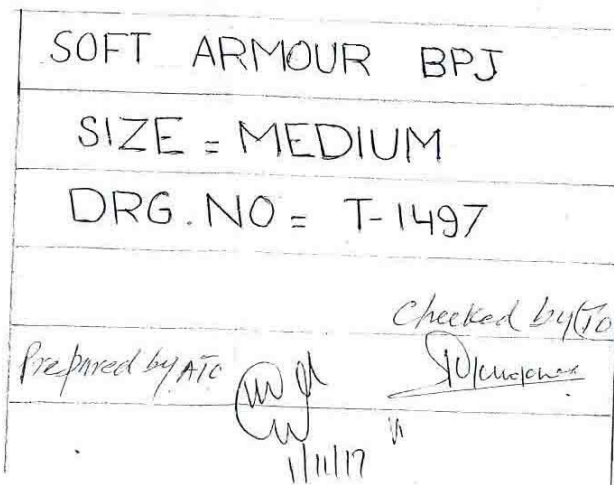 SOFT ARMOUR BPJ
SIZE = MEDIUM
DRG. NO = T-1497
Checked by (TO
Prepared by ATO
1/11/17